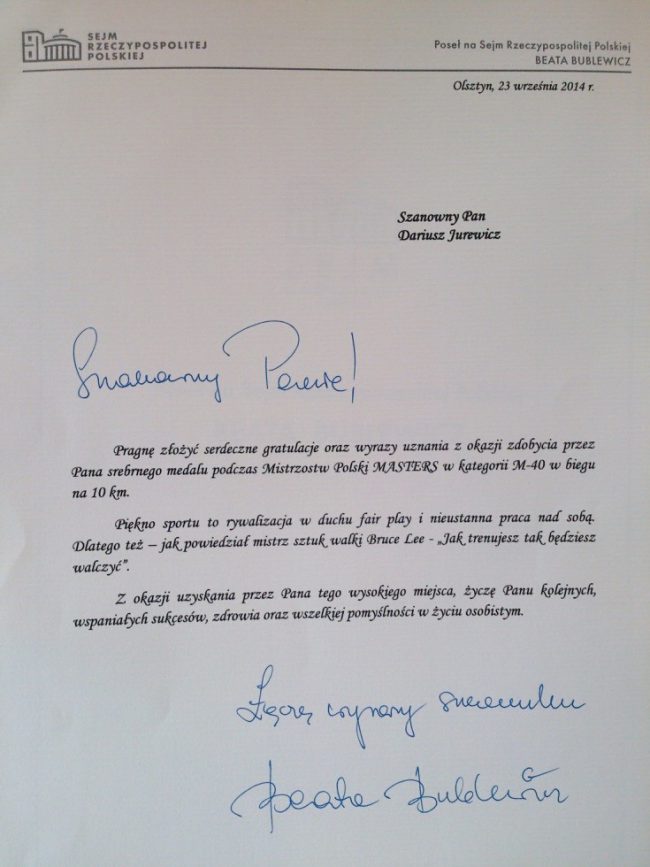 SEJM
RZECZYPOSPOLITEJ
POLSKIEJ
Poseł na Sejm Rzeczypospolitej Polskiej
BEATA BUBLEWICZ
Olsztyn, 23 września 2014 r.
Szanowny Pan
Dariusz Jurewicz
Szanowny Panie!
Pragnę złożyć serdeczne gratulacje oraz wyrazy uznania z okazji zdobycia przez
Pana srebrnego medalu podczas Mistrzostw Polski MASTERS w kategorii M-40 w biegu
na 10 km.
Piękno sportu to rywalizacja w duchu fair play i nieustanna praca nad sobą.
Dlatego też – jak powiedział mistrz sztuk walki Bruce Lee - „Jak trenujesz tak będziesz
walczyć”.
Z okazji uzyskania przez Pana tego wysokiego miejsca, życzę Panu kolejnych,
wspaniałych sukcesów, zdrowia oraz wszelkiej pomyślności w życiu osobistym.
Łączę wyrazy szacunku
Beata Bublewicz